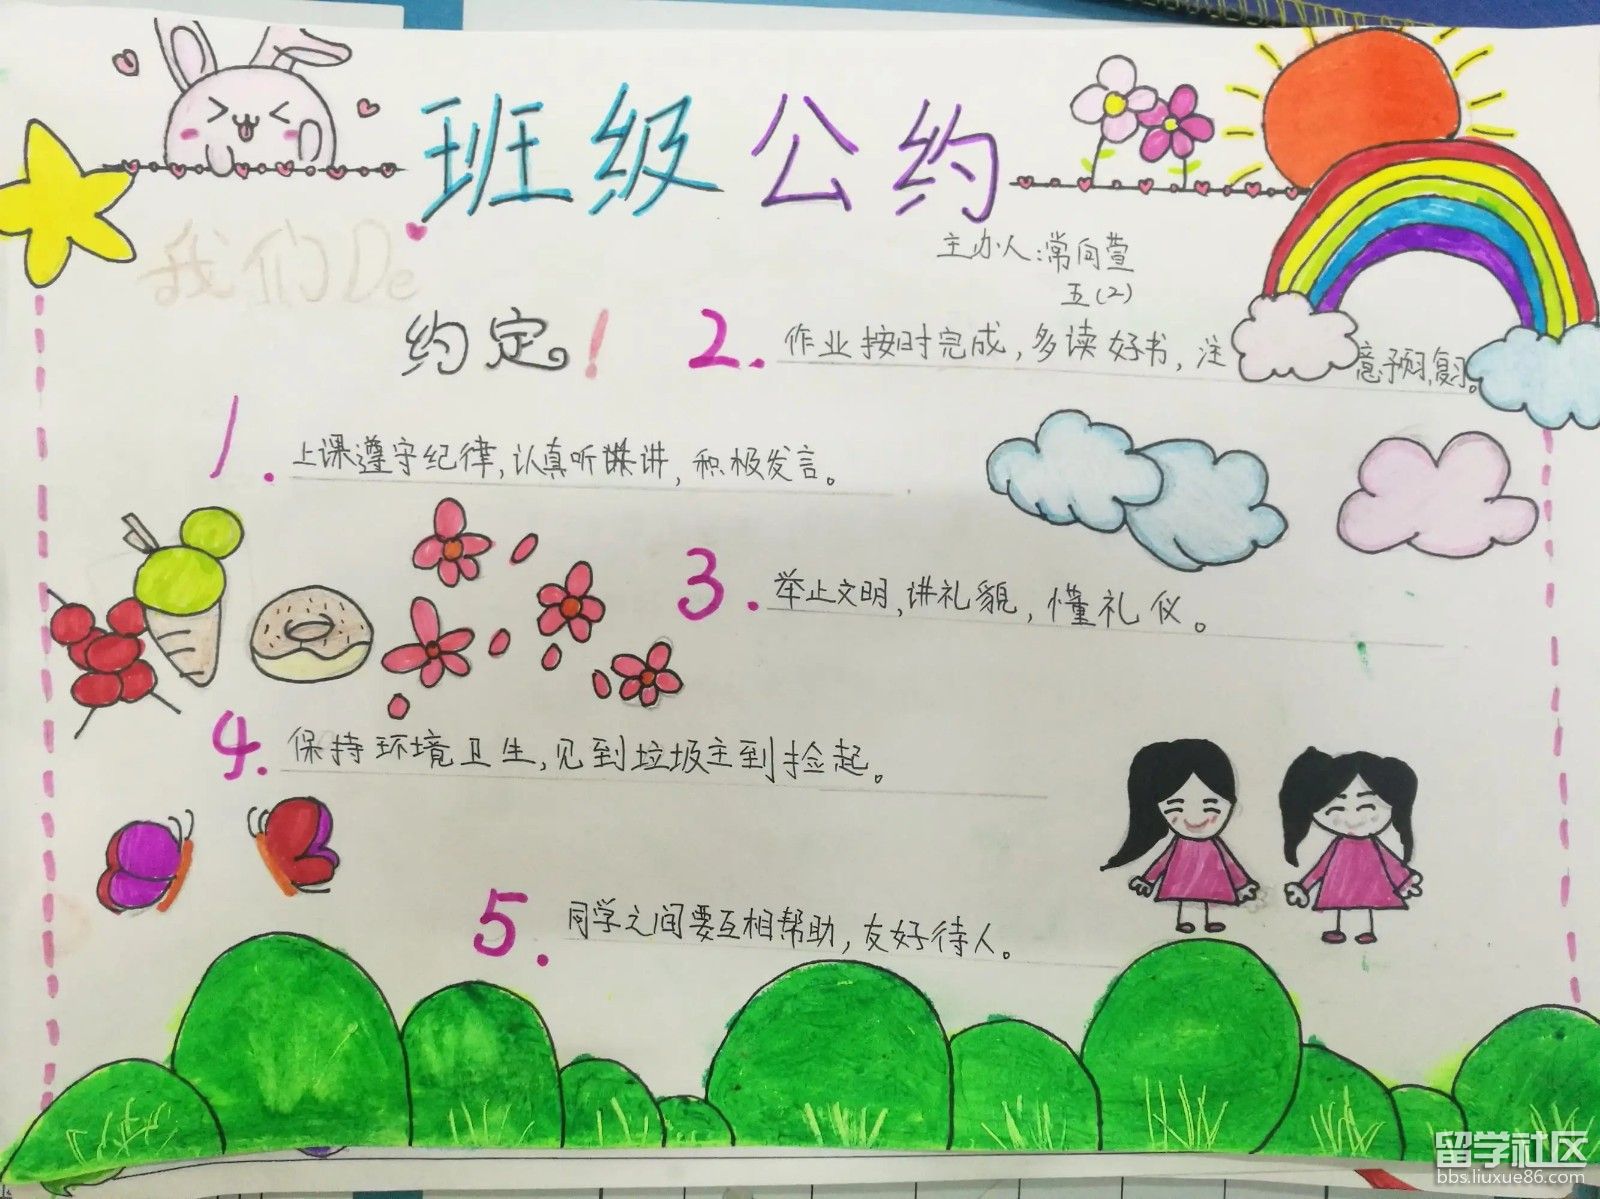 班级公约
我们De
约定。!
主办人:常向萱
五(2)
1. 上课遵守纪律,认真听讲,积极发言。
2. 作业按时完成,多读好书,注意预习,复习。
3. 举止文明,讲礼貌,懂礼仪。
4. 保持环境卫生,见到垃圾主到捡起。
5. 同学之间要互相帮助,友好待人。
留学社区
bbs.liuxue86.com